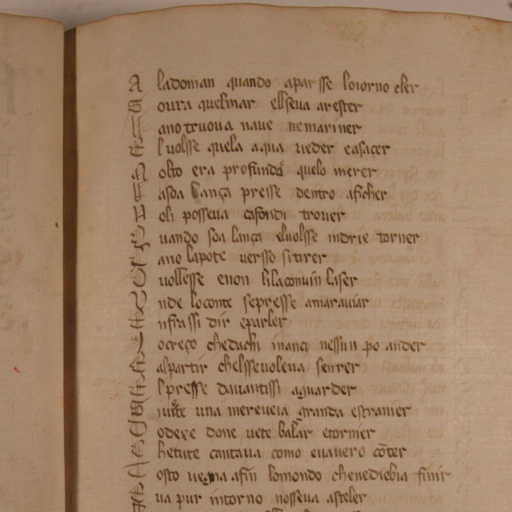 A ladoman quando aparsse loiorno cler
S oura quelmar ellseva arester
M ano trvova nave ne mariner
E l volsse quela aqua veder easaçer
M olto era profundo quelo merer
L asoa lança presse dentro aficher
N oli posseva cafondi trover
Q uando soa lança elvolsse indrie torner
M ano lapote versso si tirer
V ollesse enon li la convin laser
O nde lo conte sepresse amaraviar
E nfra ssi dir eparler
D ocreço chedachi inanci nessun po ander
alpartir chelssevoleva senrer
E l presse davantissi aguarder
vite una merveia granda estranier
V odexe done vete balar etornier
C hetute cantava como evavero conter
T osto vegna afin lomondo chenediebia finir
va pur intorno nosseva asteler